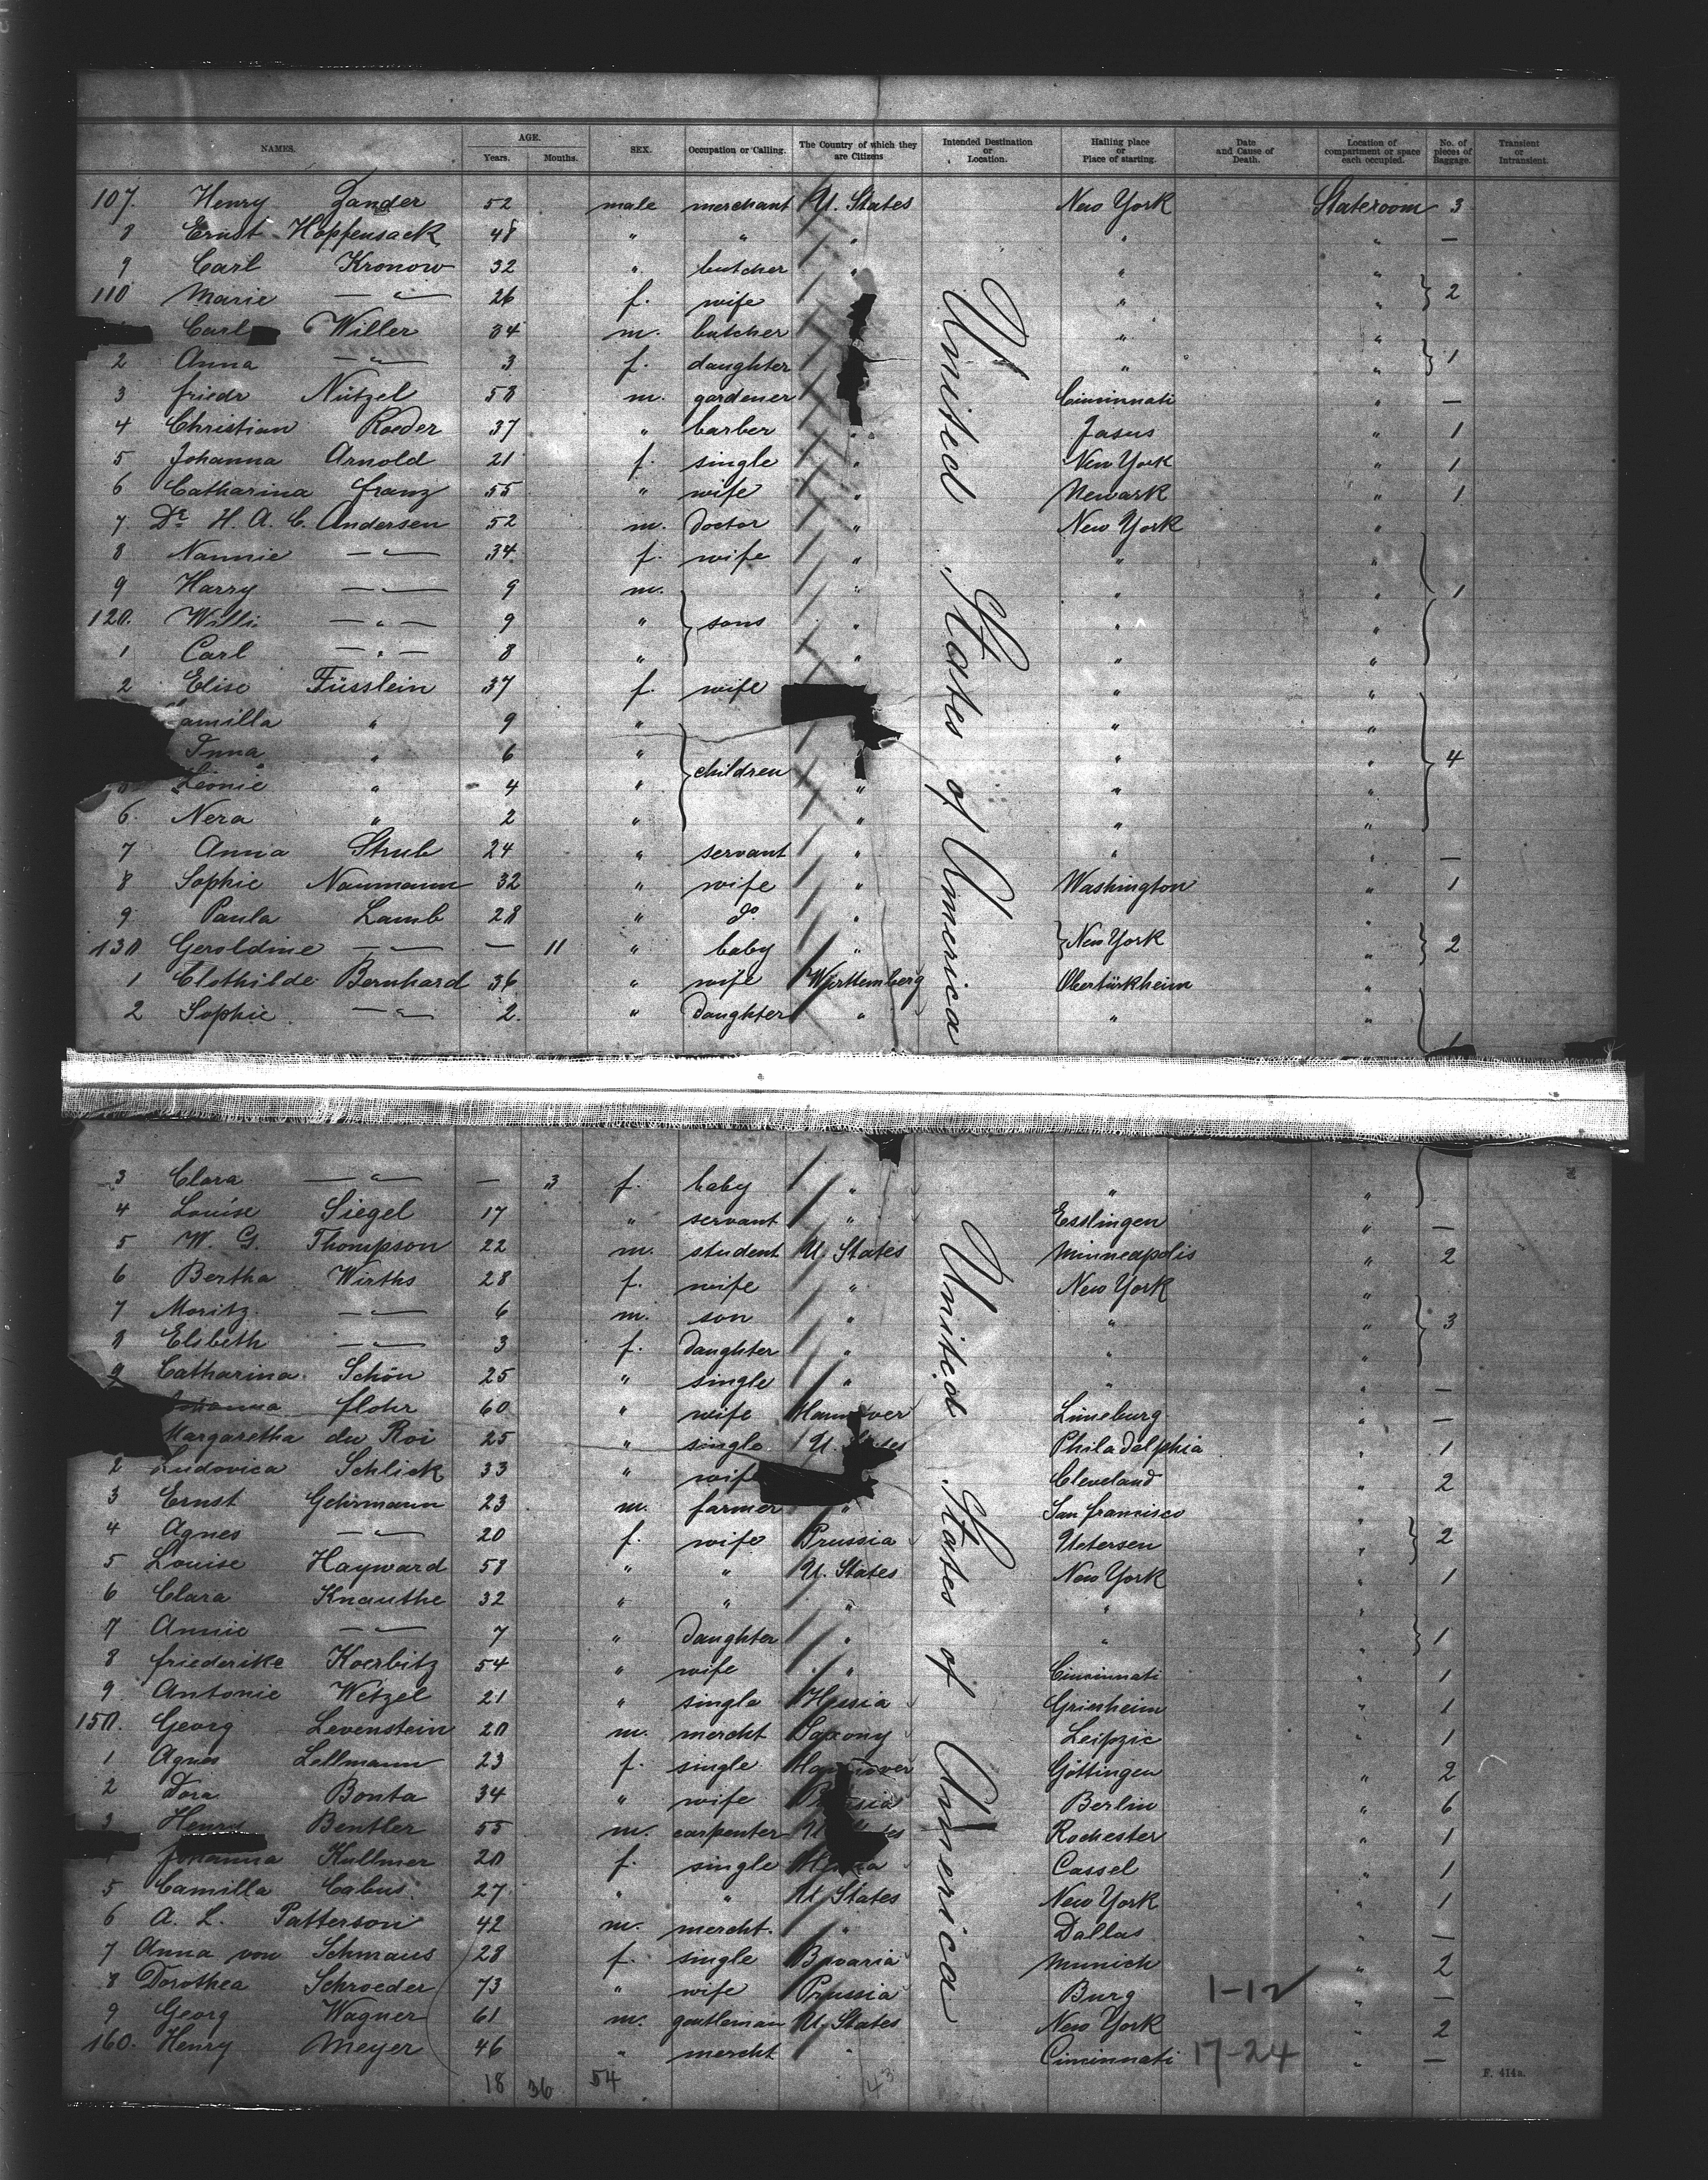 NAMES. AGE. Years. Months. SEX. Occupation or Calling. The Country of which they are Citizens Intended Destination or Location. Hailing place or Place of starting. Date and Cause of Death. Location of compartment or space each occupied. No. of pieces of Baggage. Transient or Intransient.
107. Henry Zander 52 male merchant U. States New York Stateroom 3
8 Ernst Hoppensack 48 " " " " " —
9 Carl Kronow 32 " butcher " " "
110 Marie — " — 26 f. wife " " 2
Carl Willer 34 m. butcher " "
2 Anna — " — 3 f. daughter " " 1
3 Friedr Nützel 58 m. gardener Cincinnati " —
4 Christian Roeder 37 " barber " " 1
5 Johanna Arnold 21 f. single " New York " 1
6 Catharina Franz 55 " wife " Newark " 1
7. Dr. H. A. C. Andersen 52 m. doctor " New York "
8 Nannie — " — 34 f. wife " " "
9 Harry — " — 9 m. " " " 1
120. Willi — " — 9 " sons " " "
1 Carl — " — 8 " " " "
2 Elise Füsslein 37 f. wife " "
amilla " 9 " " "
Inna " 6 " " " 4
Leonie " 4 " children " " "
6. Nera " 2 " " " "
7 Anna Strub 24 " servant " " " —
8 Sophie Naumann 32 " wife " Washington " 1
9 Paula Lamb 28 " do. " "
130 Geroldine — " — — 11 " baby " New York " 2
1 Clothilde Bernhard 36 " wife Württemberg Obertürkheim "
2 Sophie — " — 2. " daughter " " " 1
United States of America
3 Clara — " — — 3 f. baby " " "
4 Louise Siegel 17 " servant " Esslingen " —
5 W. G. Thompson 22 m. student U. States Minneapolis " 2
6 Bertha Wirths 28 f. wife " New York "
7 Moritz — " — 6 m. son " " " 3
8 Elsbeth — " — 3 f. daughter " " "
9 Catharina Schön 25 " single " " " —
Johanna Flohr 60 " wife Hannover Lüneburg " —
Margaretha du Roi 25 " single U. States Philadelphia " 1
2 Ludovica Schlick 33 " wife Cleveland " 2
3 Ernst Gehrmann 23 m. farmer " San Francisco "
4 Agnes — " — 20 f. wife Prussia Uetersen " 2
5 Louise Hayward 58 " " U. States New York " 1
6 Clara Knauthe 32 " " " " "
7 Annie — " — 7 " daughter " " " 1
8 Friederike Koerbitz 54 " wife " Cincinnati " 1
9 Antonie Wetzel 21 " single Hessia Griesheim " 1
150. Georg Levenstein 20 m. mercht Saxony Leipzic " 1
1 Agnes Lellmann 23 f. single Hannover Göttingen " 2
2 Dora Bonta 34 " wife Prussia Berlin " 6
3 Henry Bentler 55 m. carpenter U. States Rochester " 1
Johanna Kullmer 20 f. single Hessia Cassel " 1
5 Camilla Cabus 27 " " U. States New York " 1
6 A. L. Patterson 42 m. mercht. " Dallas " —
7 Anna von Schmaus 28 f. single Bavaria Munich " 2
8 Dorothea Schroeder 73 " wife Prussia Burg 1-12 " —
9 Georg Wagner 61 m. gentleman U. States New York " 2
160. Henry Meyer 46 " mercht " Cincinnati 17-24 " —
United States of America
18 36 54 43 F. 414a.